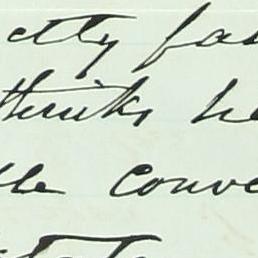 ctly fa
thinks he
le conve